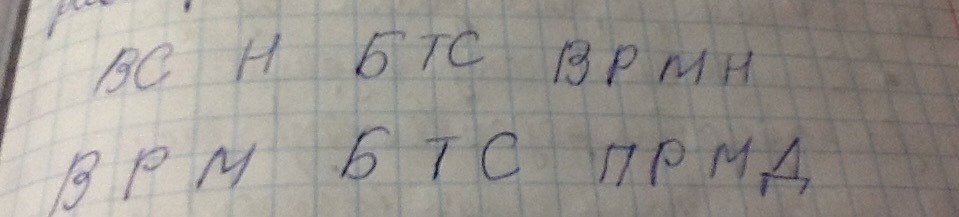 ВС Н БТС ВРМН
ВРМ БТС ПРМД